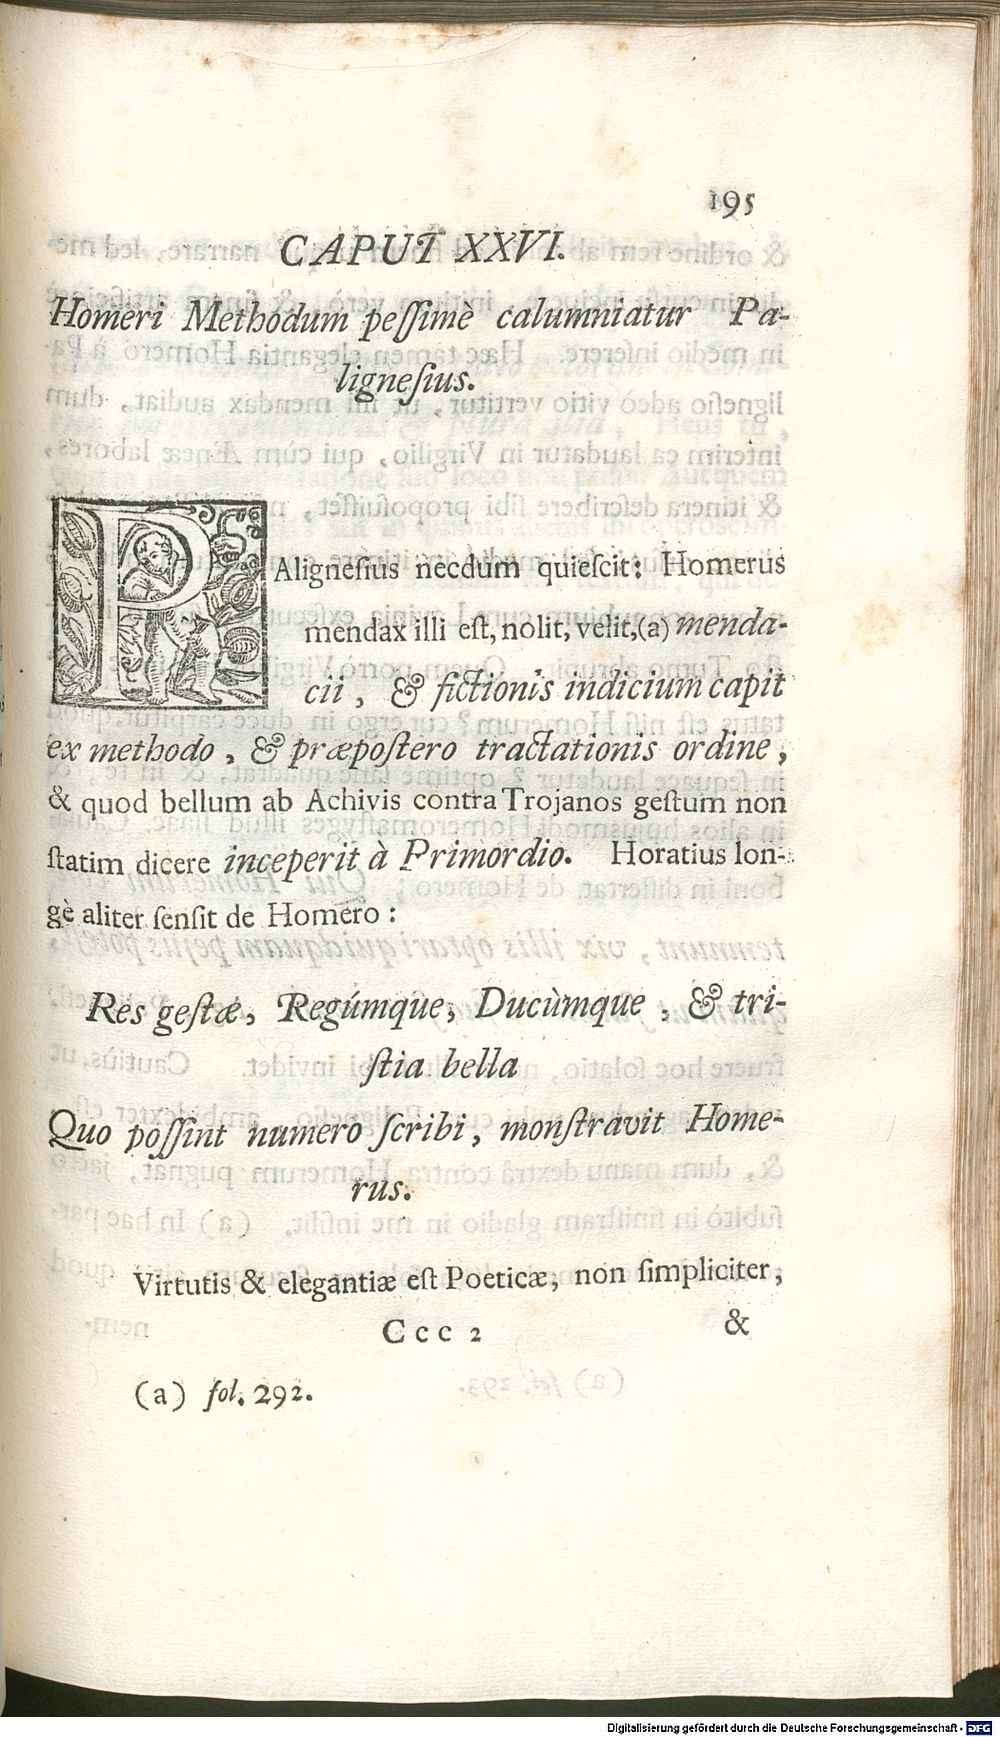 195
CAPUT XXVI.
Homeri Methodum peſſimè calumniatur Pa-
ligneſius.
PAligneſius necdum quieſcit: Homerus
mendax illi eſt, nolit, velit,(a) menda-
cii, & fictionis indicium capit
ex methodo, & præpoſtero tractationis ordine,
& quod bellum ab Achivis contra Trojanos geſtum non
ſtatim dicere inceperit à Primordio. Horatius lon-
gè aliter ſenſit de Homero:
Res geſtæ, Regúmque, Ducùmque, & tri-
ſtia bella
Quo poſſint numero ſcribi, monſtravit Home-
rus.
Virtutis & elegantiæ eſt Poeticæ, non ſimpliciter,
Ccc 2 &
(a) fol. 292.
Digitalisierung gefördert durch die Deutsche Forschungsgemeinschaft - DFG